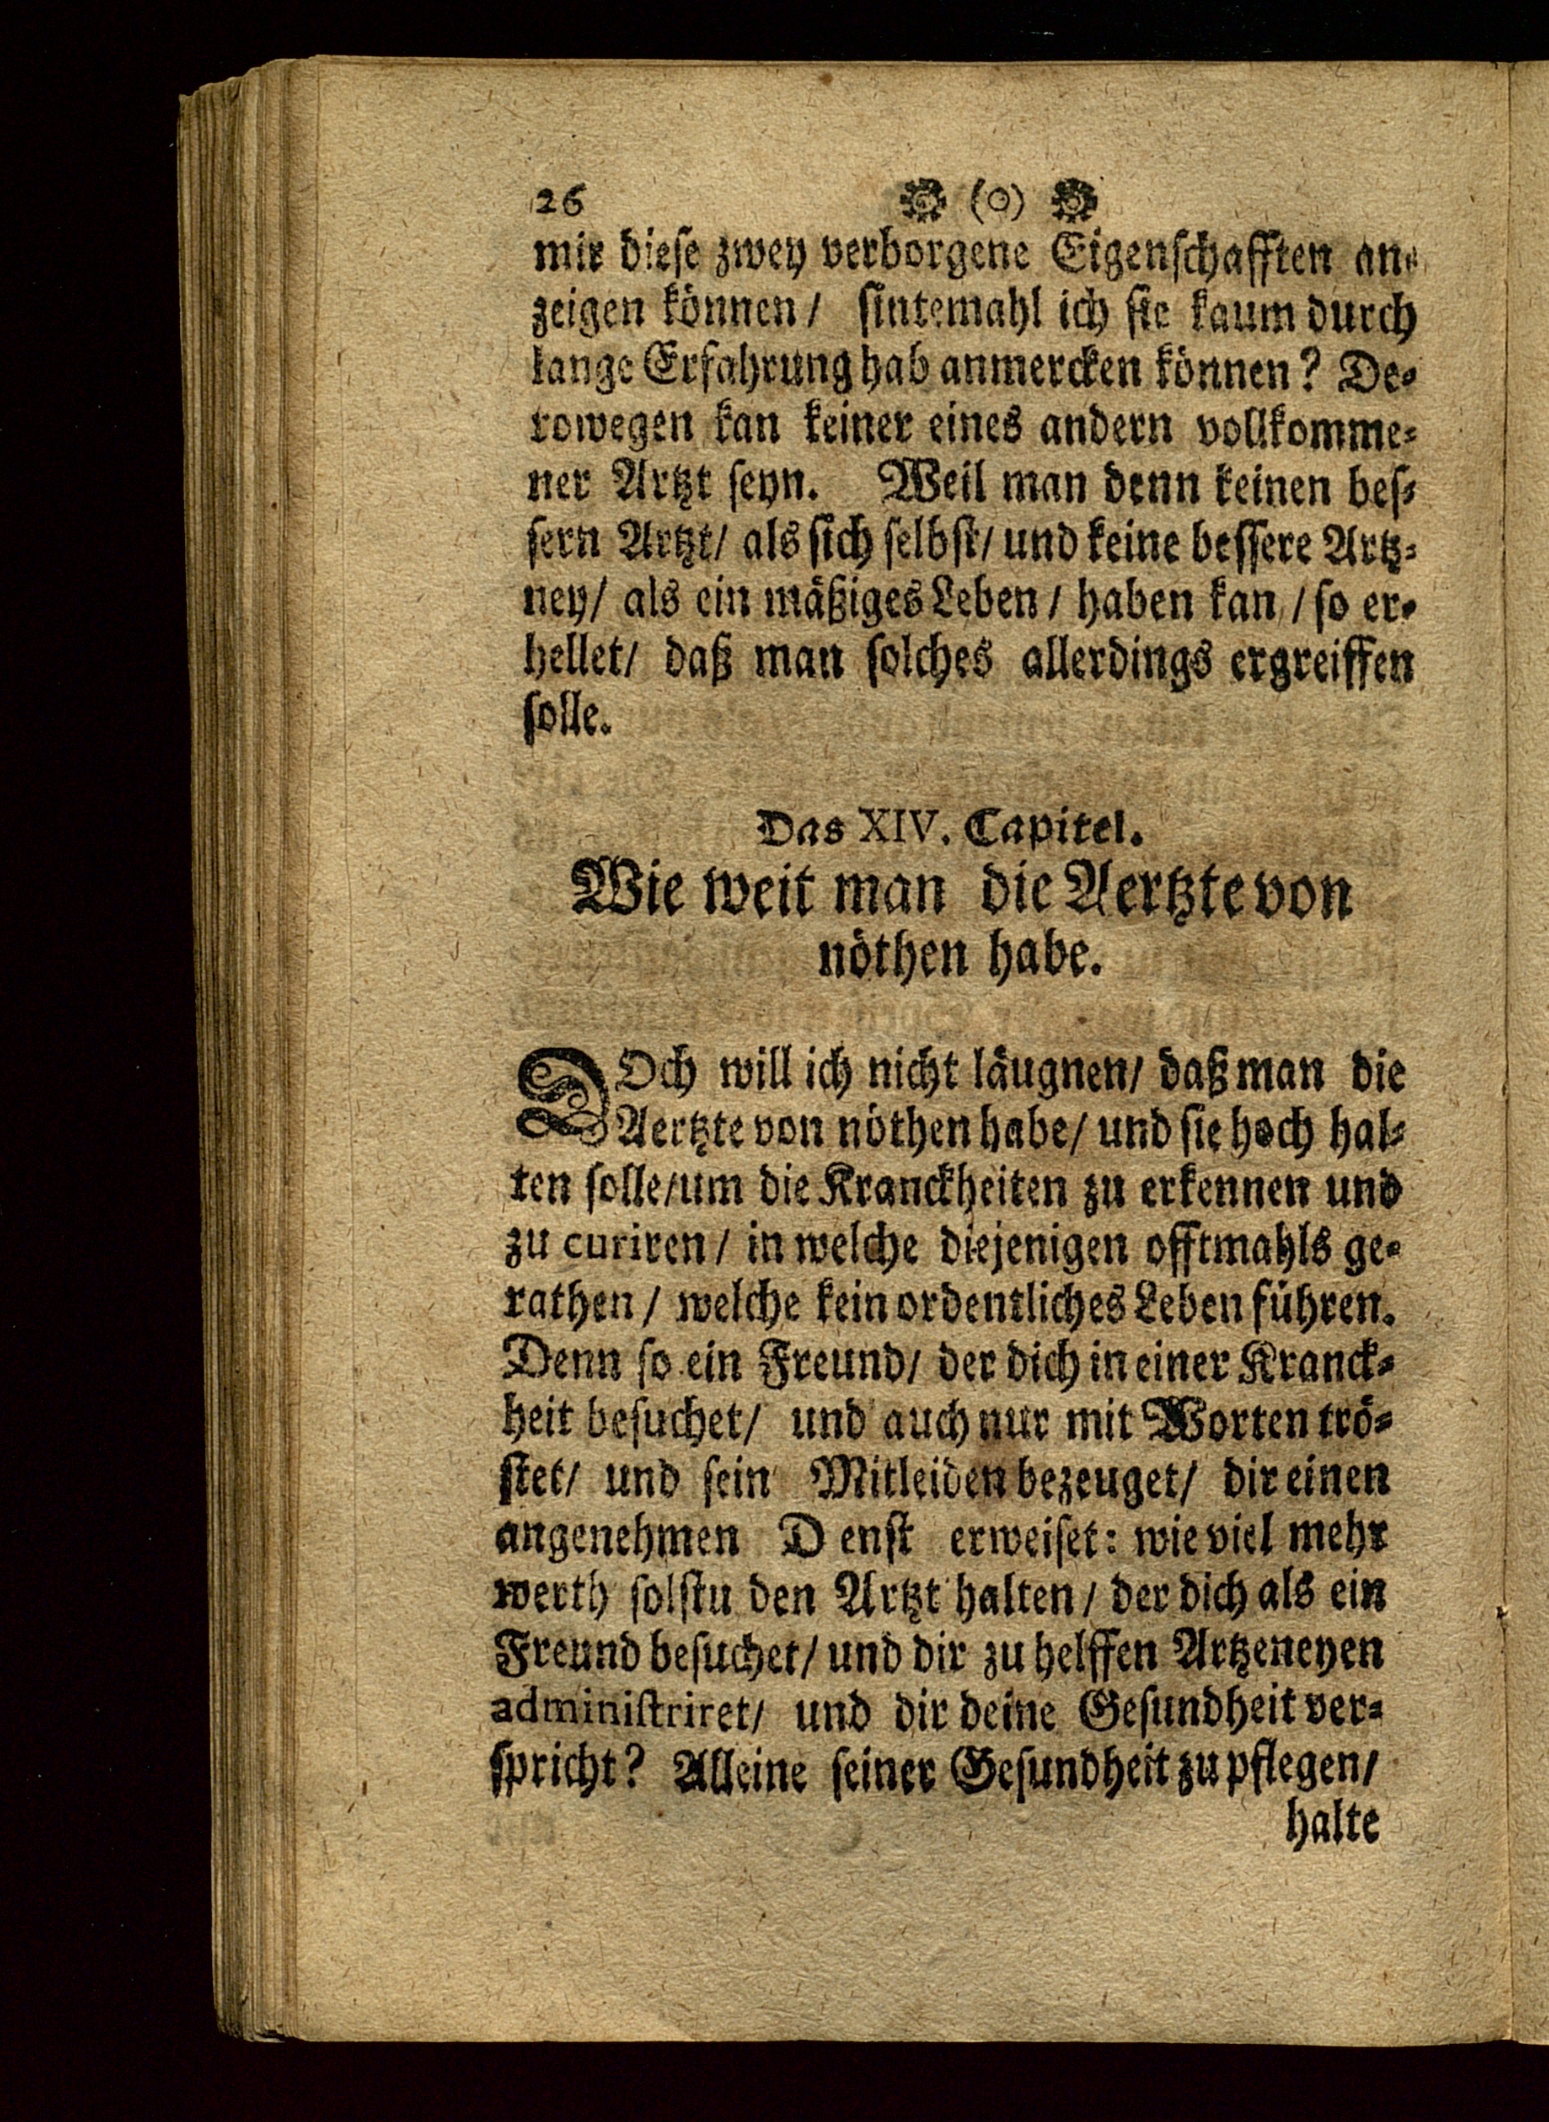 26 (o)
mir diese zwey verborgene Eigenschafften an-
zeigen können/ sintemahl ich sie kaum durch
lange Erfahrung hab anmercken können? De-
rowegen kan keiner eines andern vollkomme-
ner Artzt seyn. Weil man denn keinen bes-
sern Artzt/ als sich selbst/ und keine bessere Artz-
ney/ als ein mäßiges Leben/ haben kan/ so er-
hellet/ daß man solches allerdings ergreiffen
solle.
Das XIV. Capitel.
Wie weit man die Aertzte von
nöthen habe.
DOch will ich nicht läugnen/ daß man die
Aertzte von nöthen habe/ und sie hoch hal-
ten solle/um die Kranckheiten zu erkennen und
zu curiren/ in welche diejenigen offtmahls ge-
rathen/ welche kein ordentliches Leben führen.
Denn so ein Freund/ der dich in einer Kranck-
heit besuchet/ und auch nur mit Worten trö-
stet/ und sein Mitleiden bezeuget/ dir einen
angenehmen D enst erweiset: wie viel mehr
werth solstu den Artzt halten/ der dich als ein
Freund besuchet/ und dir zu helffen Artzeneyen
administriret/ und dir deine Gesundheit ver-
spricht? Alleine seiner Gesundheit zu pflegen/
halte